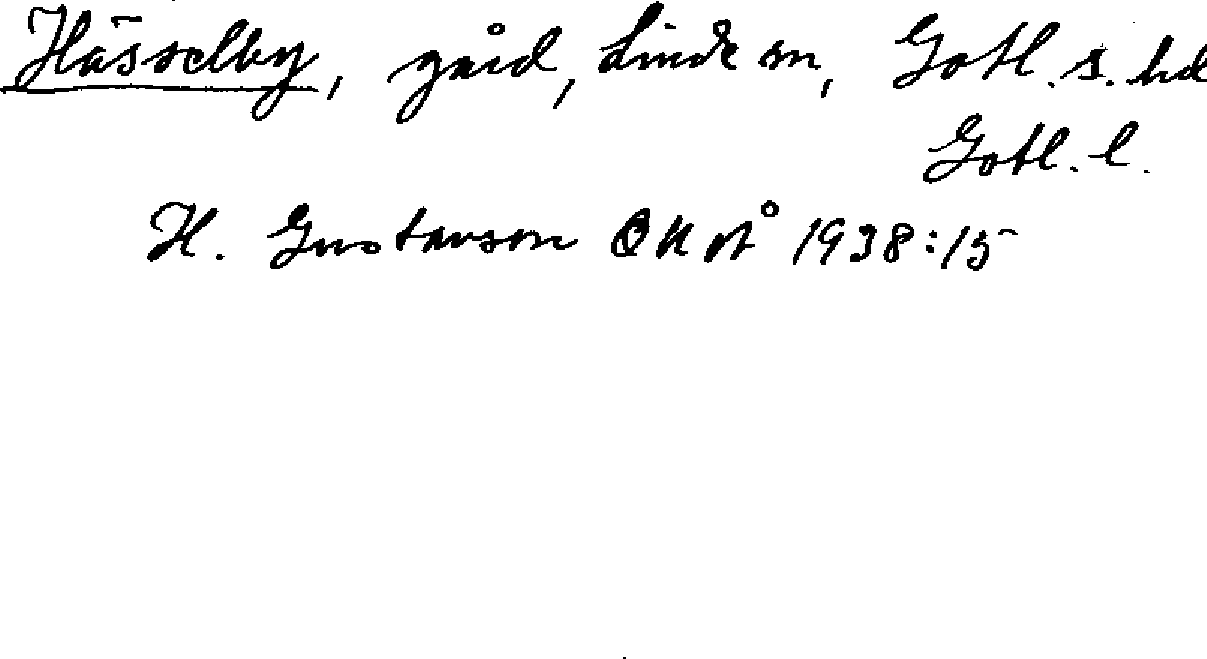 Hässelby, gård, Linde sn, Gotl. s. hd
Gotl. l.
H. Gustavson 1938:15